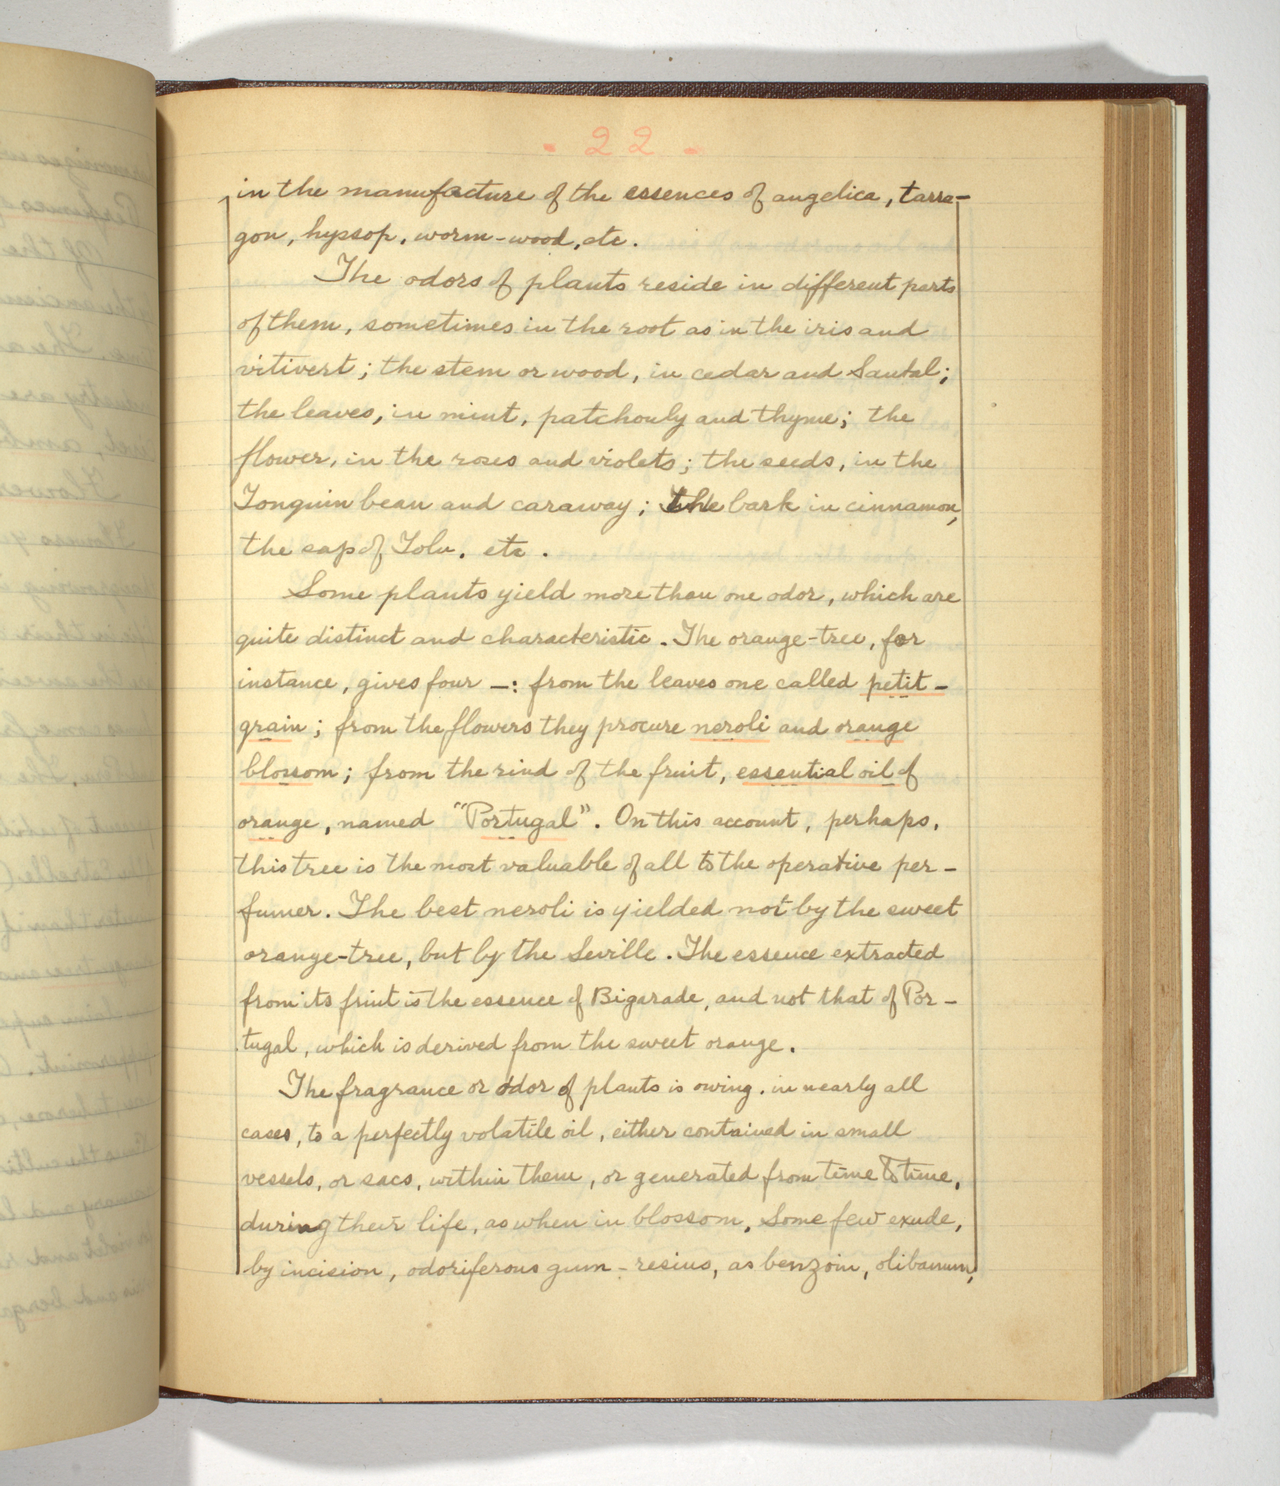 - 22 -
in the manufacture of the essences of angelica, tarra-
gon, hyssop, worm-wood, etc.
The odors of plants reside in different parts
of them, sometimes in the root as in the iris and
vitivert; the stem or wood, in cedar and Santal;
the leaves, in mint, patchouly and thyme; the
flower, in the roses and violets; the seeds, in the
Tonquin bean and caraway; the bark in cinnamon,
the sap of Tolu, etc.
Some plants yield more than one odor, which are
quite distinct and characteristic. The orange-tree, for
instance, gives four —: from the leaves one called petit-
grain; from the flowers they procure neroli and orange
blossom; from the rind of the fruit, essential oil of
orange, named "Portugal". On this account, perhaps,
this tree is the most valuable of all to the operative per-
fumer. The best neroli is yielded not by the sweet
orange-tree, but by the Seville. The essence extracted
from its fruit is the essence of Bigarade, and not that of Por-
tugal, which is derived from the sweet orange.
The fragrance or odor of plants is owing, in nearly all
cases, to a perfectly volatile oil, either contained in small
vessels, or sacs, within them, or generated from time to time,
during their life, as when in blossom. Some few exude,
by incision, odoriferous gum-resins, as benzoin, olibanum,